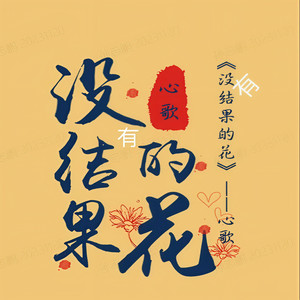 没有结果
的花
心歌
《没有结果的花》——心歌